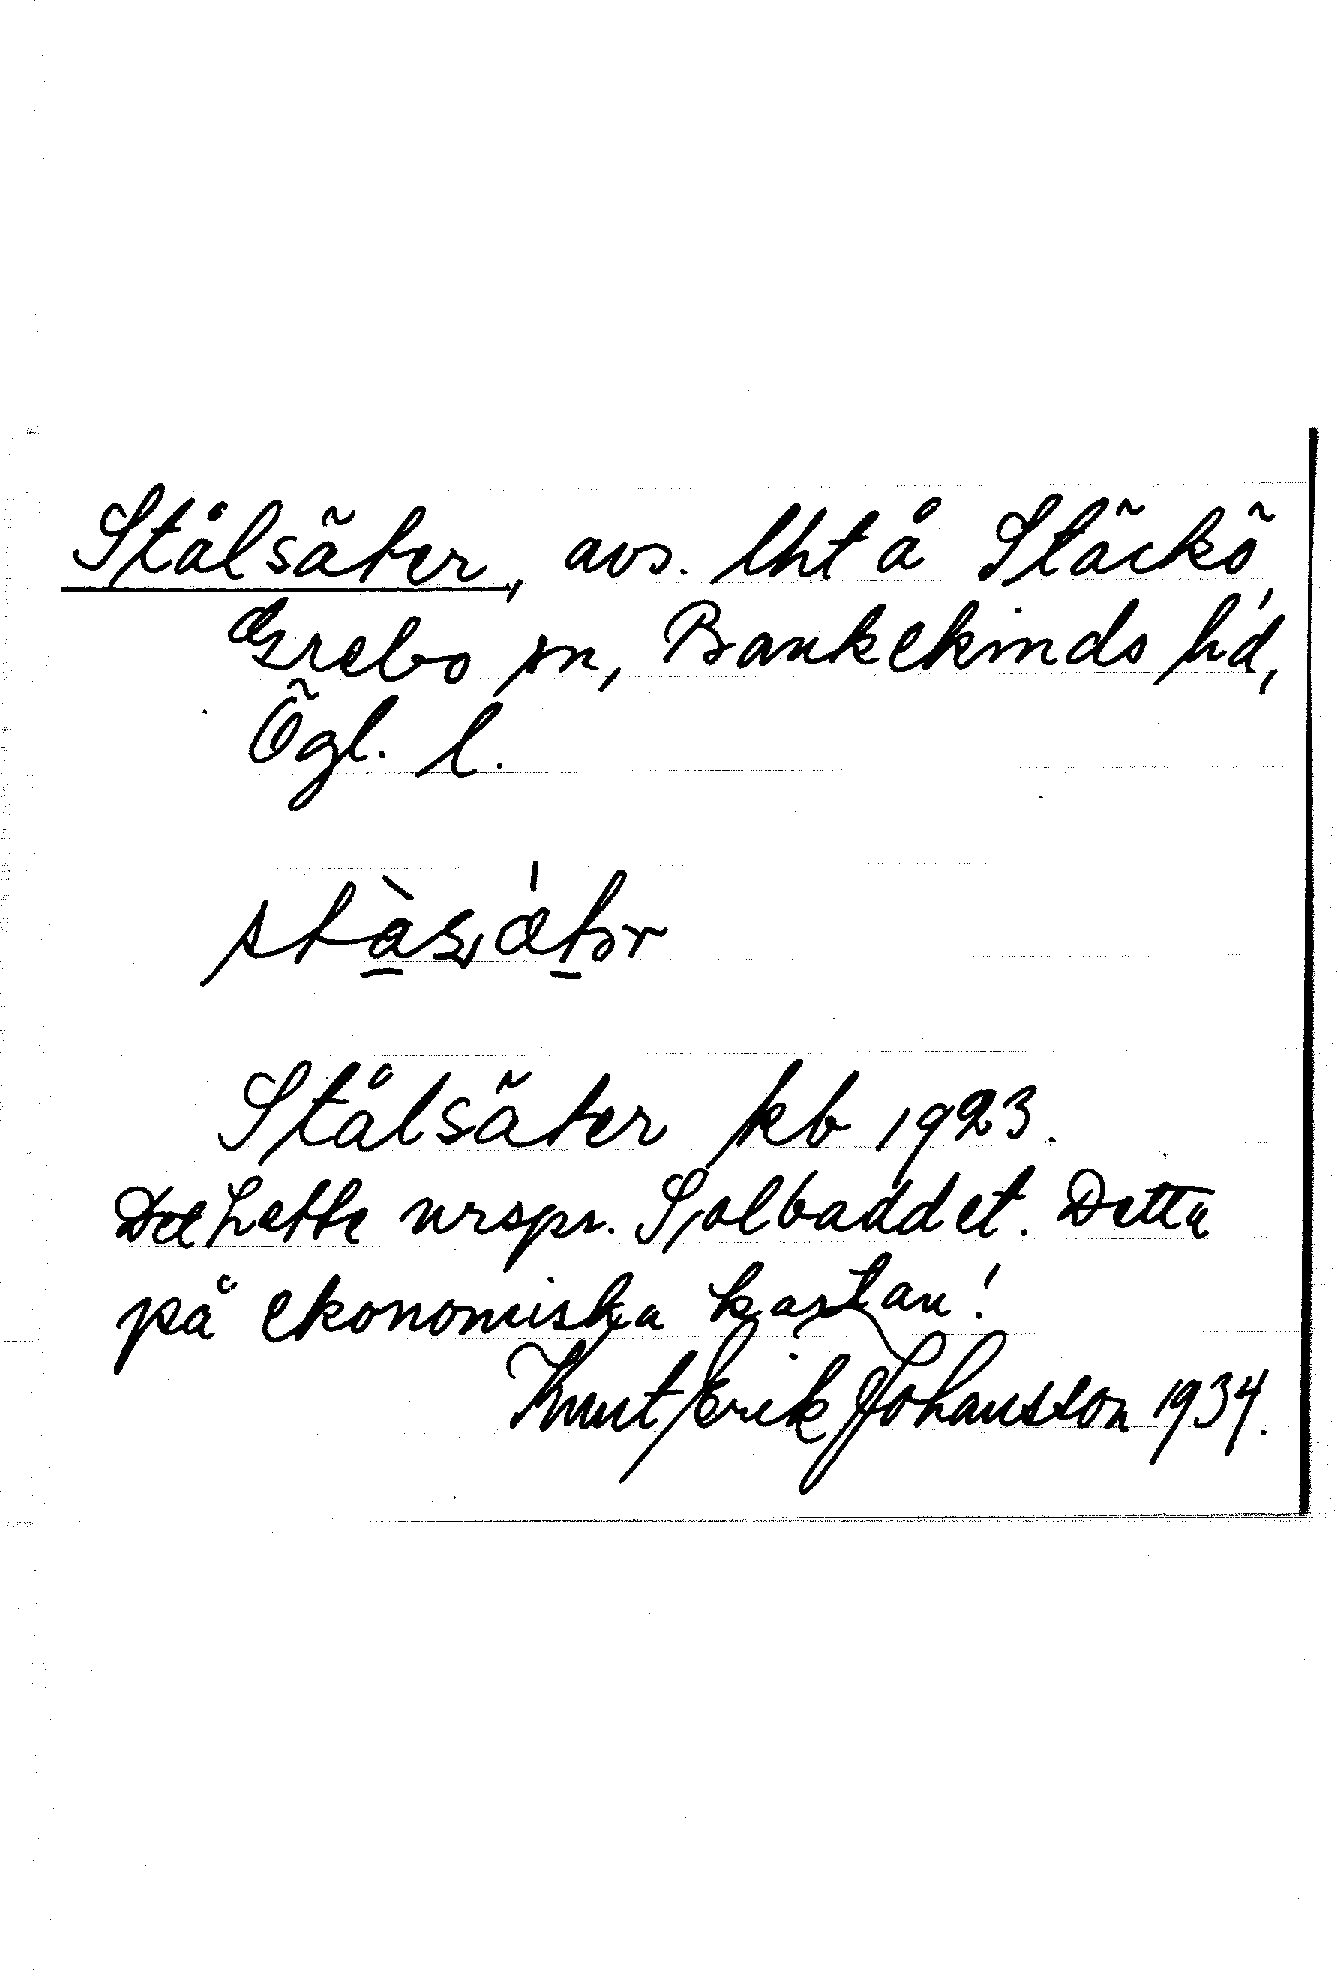 Stålsäter, avs. lht å Stäckö,
Grebo sn, Bankekinds hd,
Ögl. l.
Stålsäter kb 1923.
Det hette urspr. Solbaddet. Detta
på ekonomiska kartan!
Knut Erik Johansson 1934.